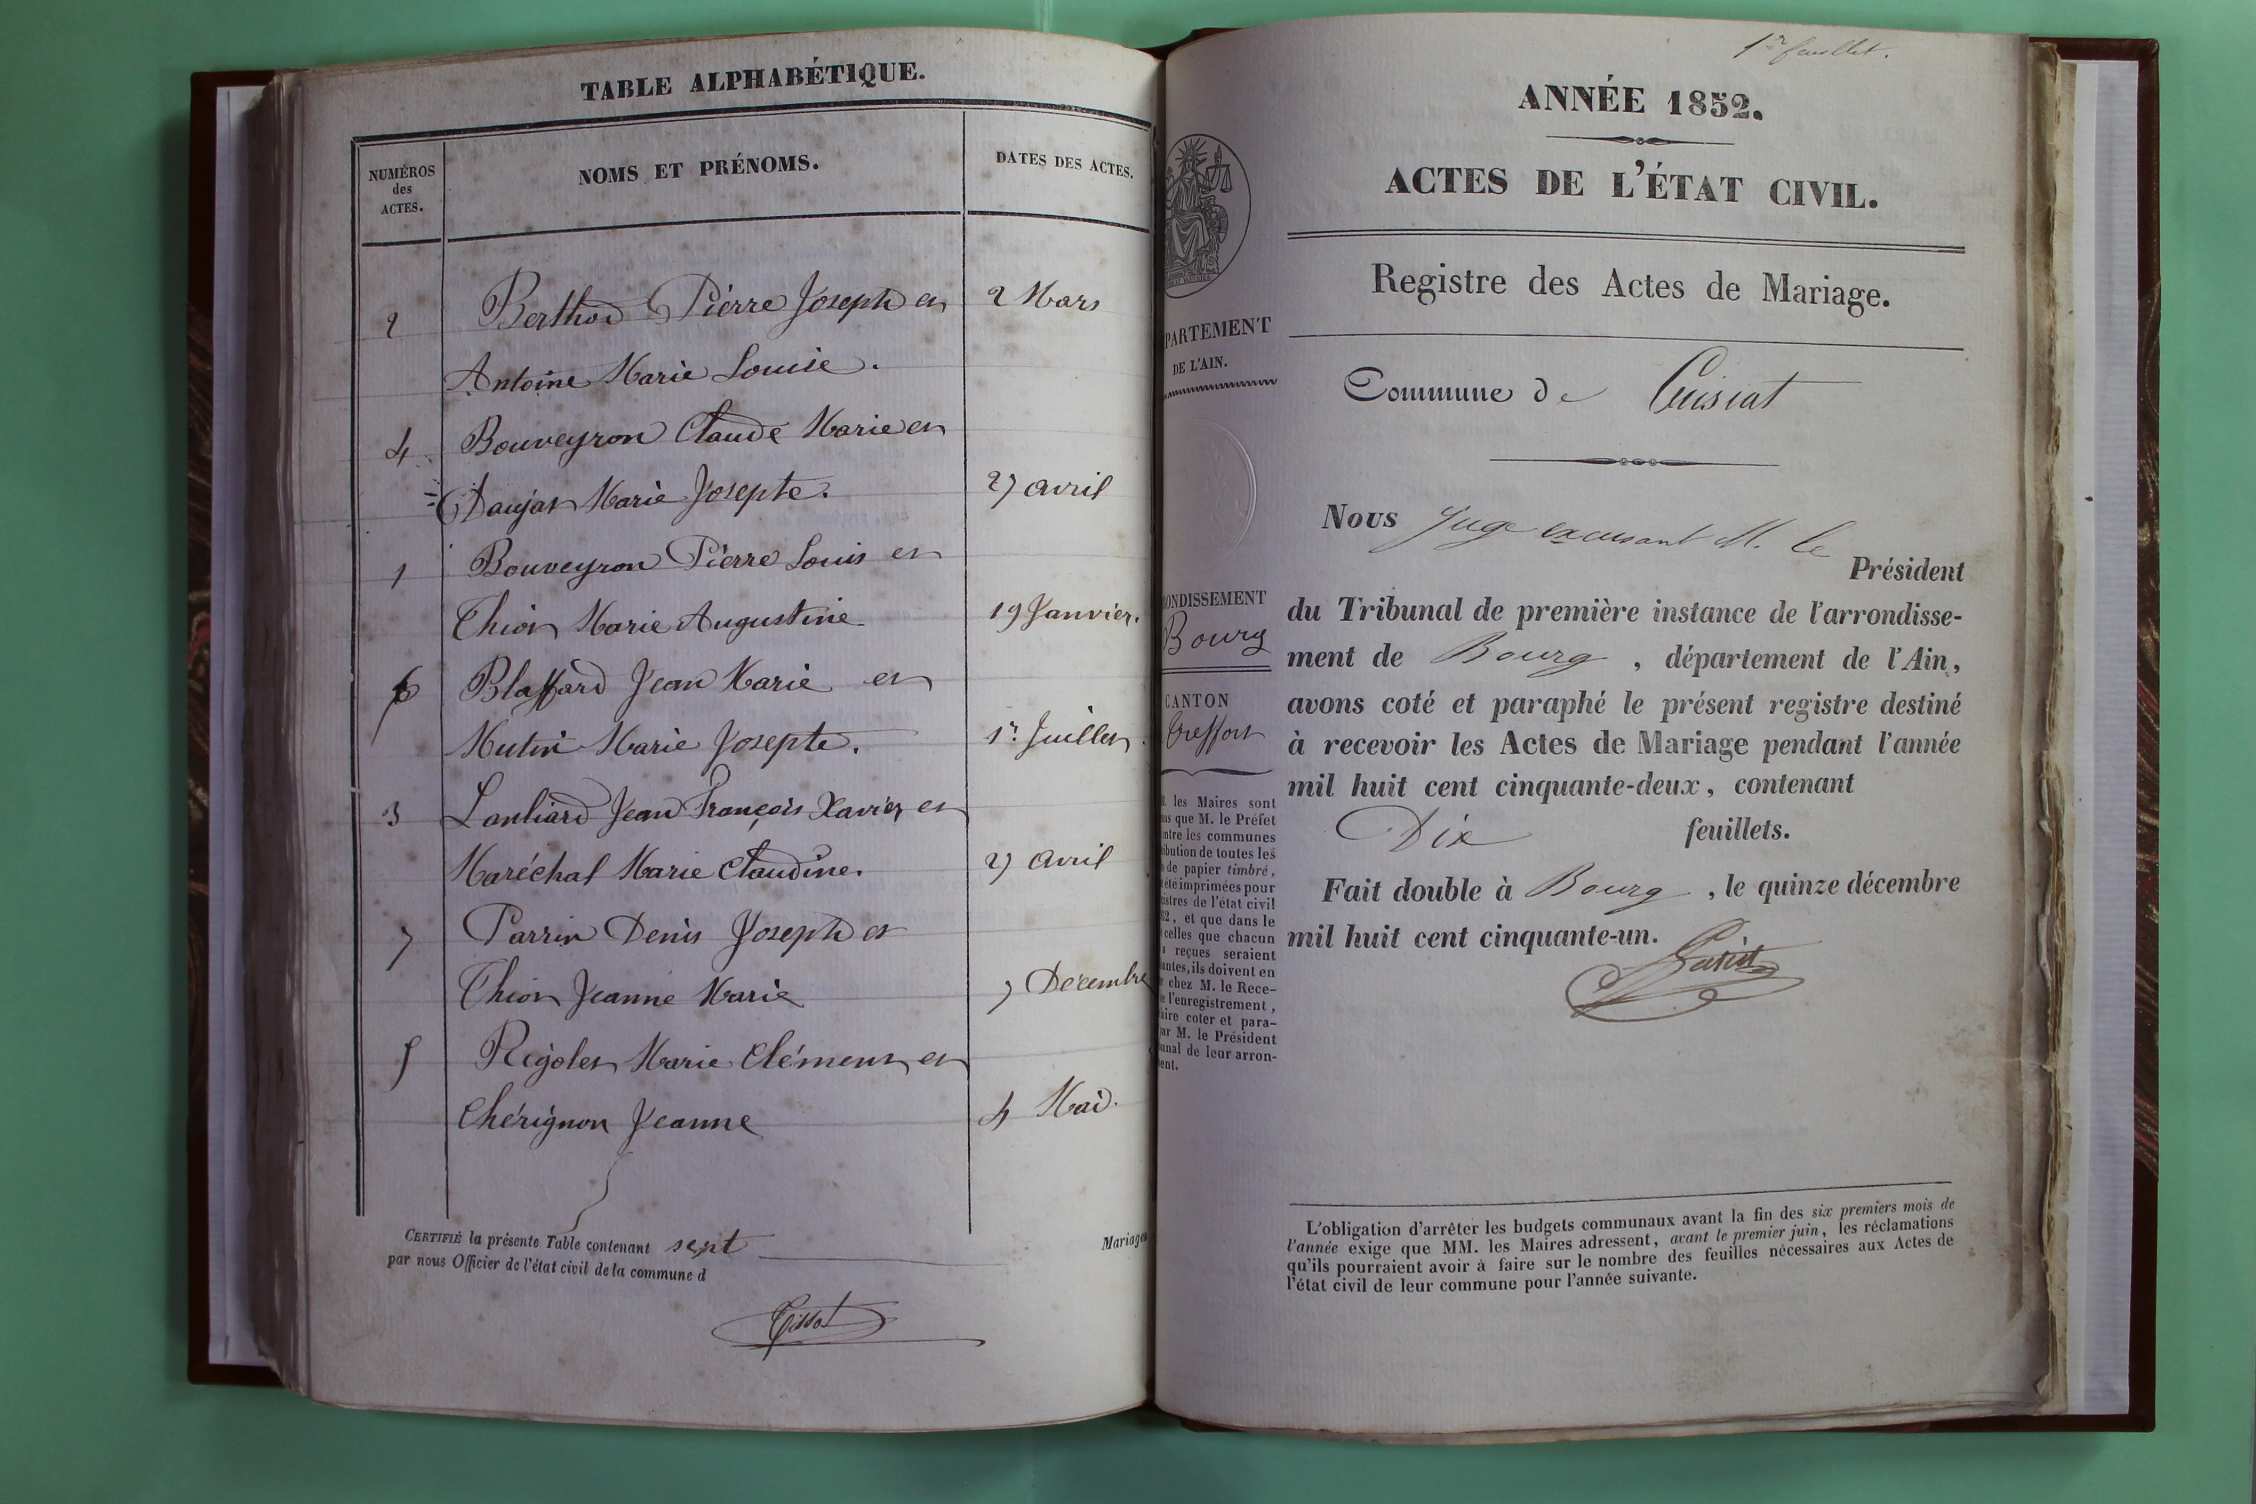 TABLE ALPHABÉTIQUE.
NUMÉROS
des
ACTES.
NOMS ET PRÉNOMS.
DATES DES ACTES.
2 Berthod Pierre Joseph et 2 Mars
Antoine Marie Louise.
4 Bouveyron Claude Marie et
Daujat Marie Josepte. 27 avril
1 Bouveyron Pierre Louis et
Thion Marie Augustine 19 Janvier.
6 Blaffard Jean Marie et
Mutin Marie Josepte. 1r. Juillet.
3 Lanliard Jean François Xavier et
Maréchal Marie Claudine. 27 avril
7 Parrin Denis Joseph et
Thion Jeanne Marie 7 Décembre
5 Rigolet Marie Clément et
Chérignon Jeanne 4 Mai.
CERTIFIÉ la présente Table contenant sept Mariages
par nous Officier de l'état civil de la commune d
Tissot
1er feuillet.
ANNÉE 1852.
ACTES DE L'ÉTAT CIVIL.
Registre des Actes de Mariage.
PARTEMENT
DE L'AIN.
Commune de Cuisiat
Nous Juge excusant M. le
Président
du Tribunal de première instance de l'arrondisse-
ment de Bourg, département de l'Ain,
avons coté et paraphé le présent registre destiné
à recevoir les Actes de Mariage pendant l'année
mil huit cent cinquante-deux, contenant
Dix feuillets.
Fait double à Bourg, le quinze décembre
mil huit cent cinquante-un.
ONDISSEMENT
Bourg
CANTON
Treffort
les Maires sont
us que M. le Préfet
ntre les communes
ibution de toutes les
de papier timbré,
été imprimées pour
istres de l'état civil
52, et que dans le
celles que chacun
reçues seraient
antes, ils doivent en
chez M. le Rece-
e l'enregistrement,
aire coter et para-
ar M. le Président
unal de leur arron-
ent.
L'obligation d'arrêter les budgets communaux avant la fin des six premiers mois de
l'année exige que MM. les Maires adressent, avant le premier juin, les réclamations
qu'ils pourraient avoir à faire sur le nombre des feuilles nécessaires aux Actes de
l'état civil de leur commune pour l'année suivante.